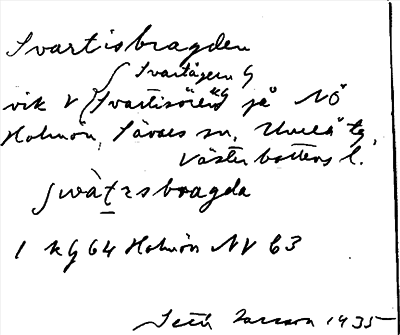 Svartisbragden
Svartågern G
vik V Svartisören kg på NÖ
Holmön, Sävars sn, Umeå tg,
Västerbottens l.
swàtısbragda
1 kg 64 Holmön NV b3
Seth Larsson 1935